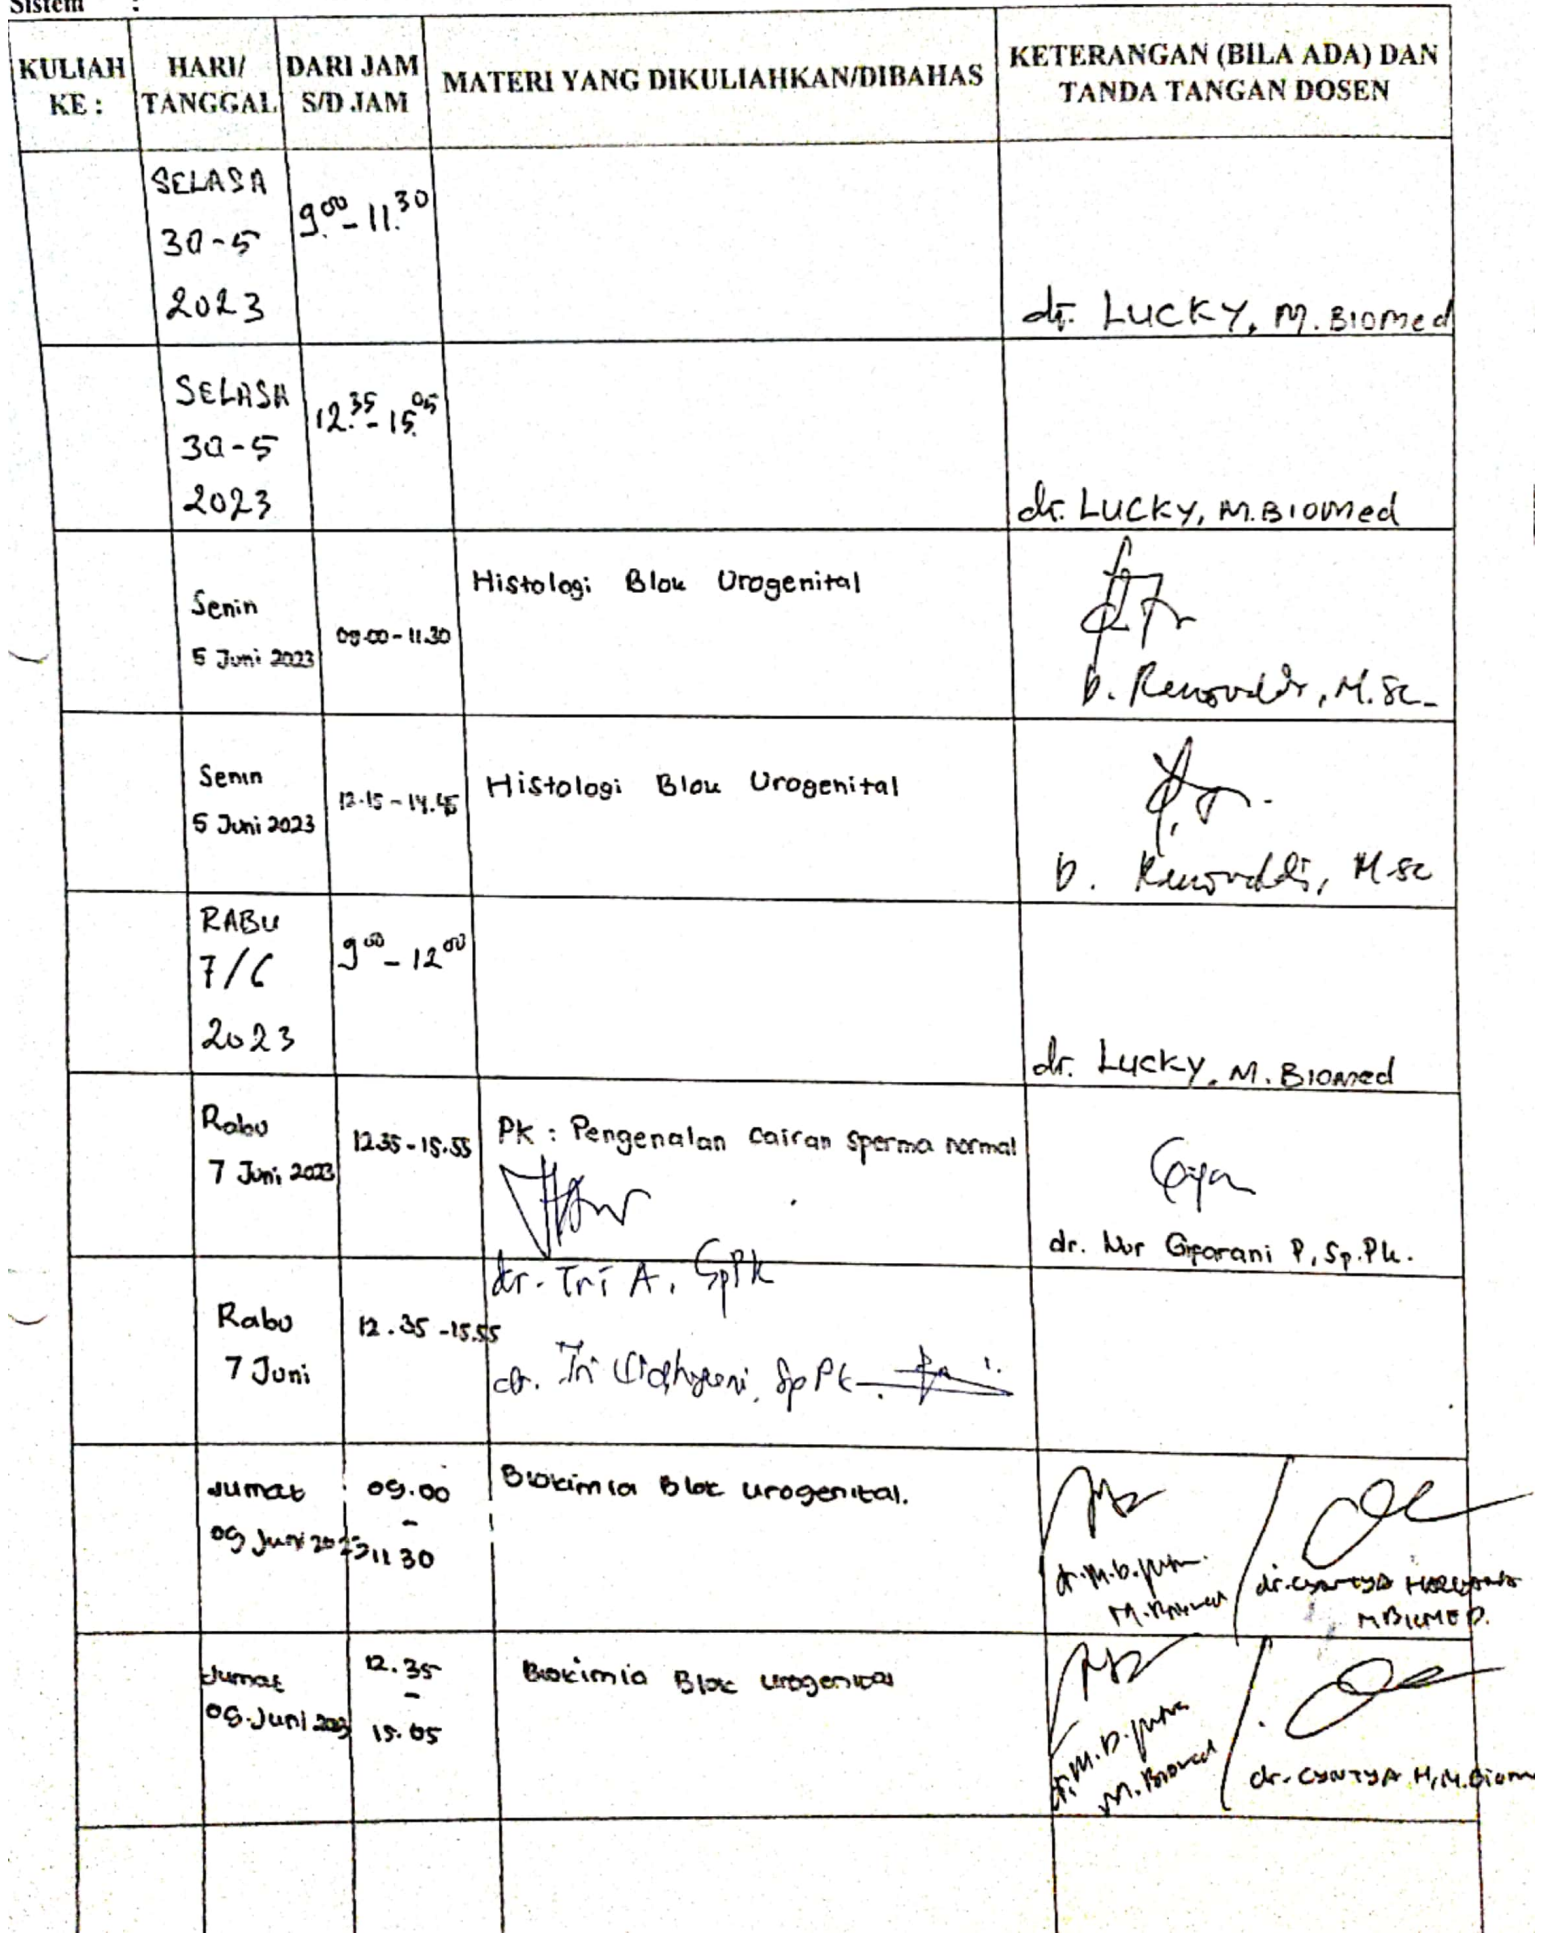 Sistem :
KULIAH KE :
HARI/ TANGGAL
DARI JAM S/D JAM
MATERI YANG DIKULIAHKAN/DIBAHAS
KETERANGAN (BILA ADA) DAN TANDA TANGAN DOSEN
SELASA
30-5
2023
9.00 - 11.30
dr. LUCKY, M. BIOMed
SELASA
30-5
2023
12.35 - 15.05
dr. LUCKY, M.BIOMed
Senin
5 Juni 2023
09.00 - 11.30
Histologi Blok Urogenital
M.Sc
Senin
5 Juni 2023
12.15 - 14.45
Histologi Blok Urogenital
M.Sc
RABU
7/6
2023
9.00 - 12.00
dr. Lucky, M. BIOMed
Rabu
7 Juni 2023
12.35 - 15.55
PK : Pengenalan cairan sperma normal
dr. Tri A, SpPk
dr. Nur Gifarani P, Sp.Pk.
Rabu
7 Juni
12.35 - 15.55
dr. Tri SpPk
Jumat
09 Juni 2023
09.00
-
11 30
Biokimia Blok urogenital.
dr. M.D. Putra
M. Biomed
dr. CYNTYA
M BIOMED.
Jumat
09. Juni 2023
12.35
-
15.05
Biokimia Blok urogenital
dr. M. D. Putra
M. Biomed
dr. CYNTYA H, M. Biom